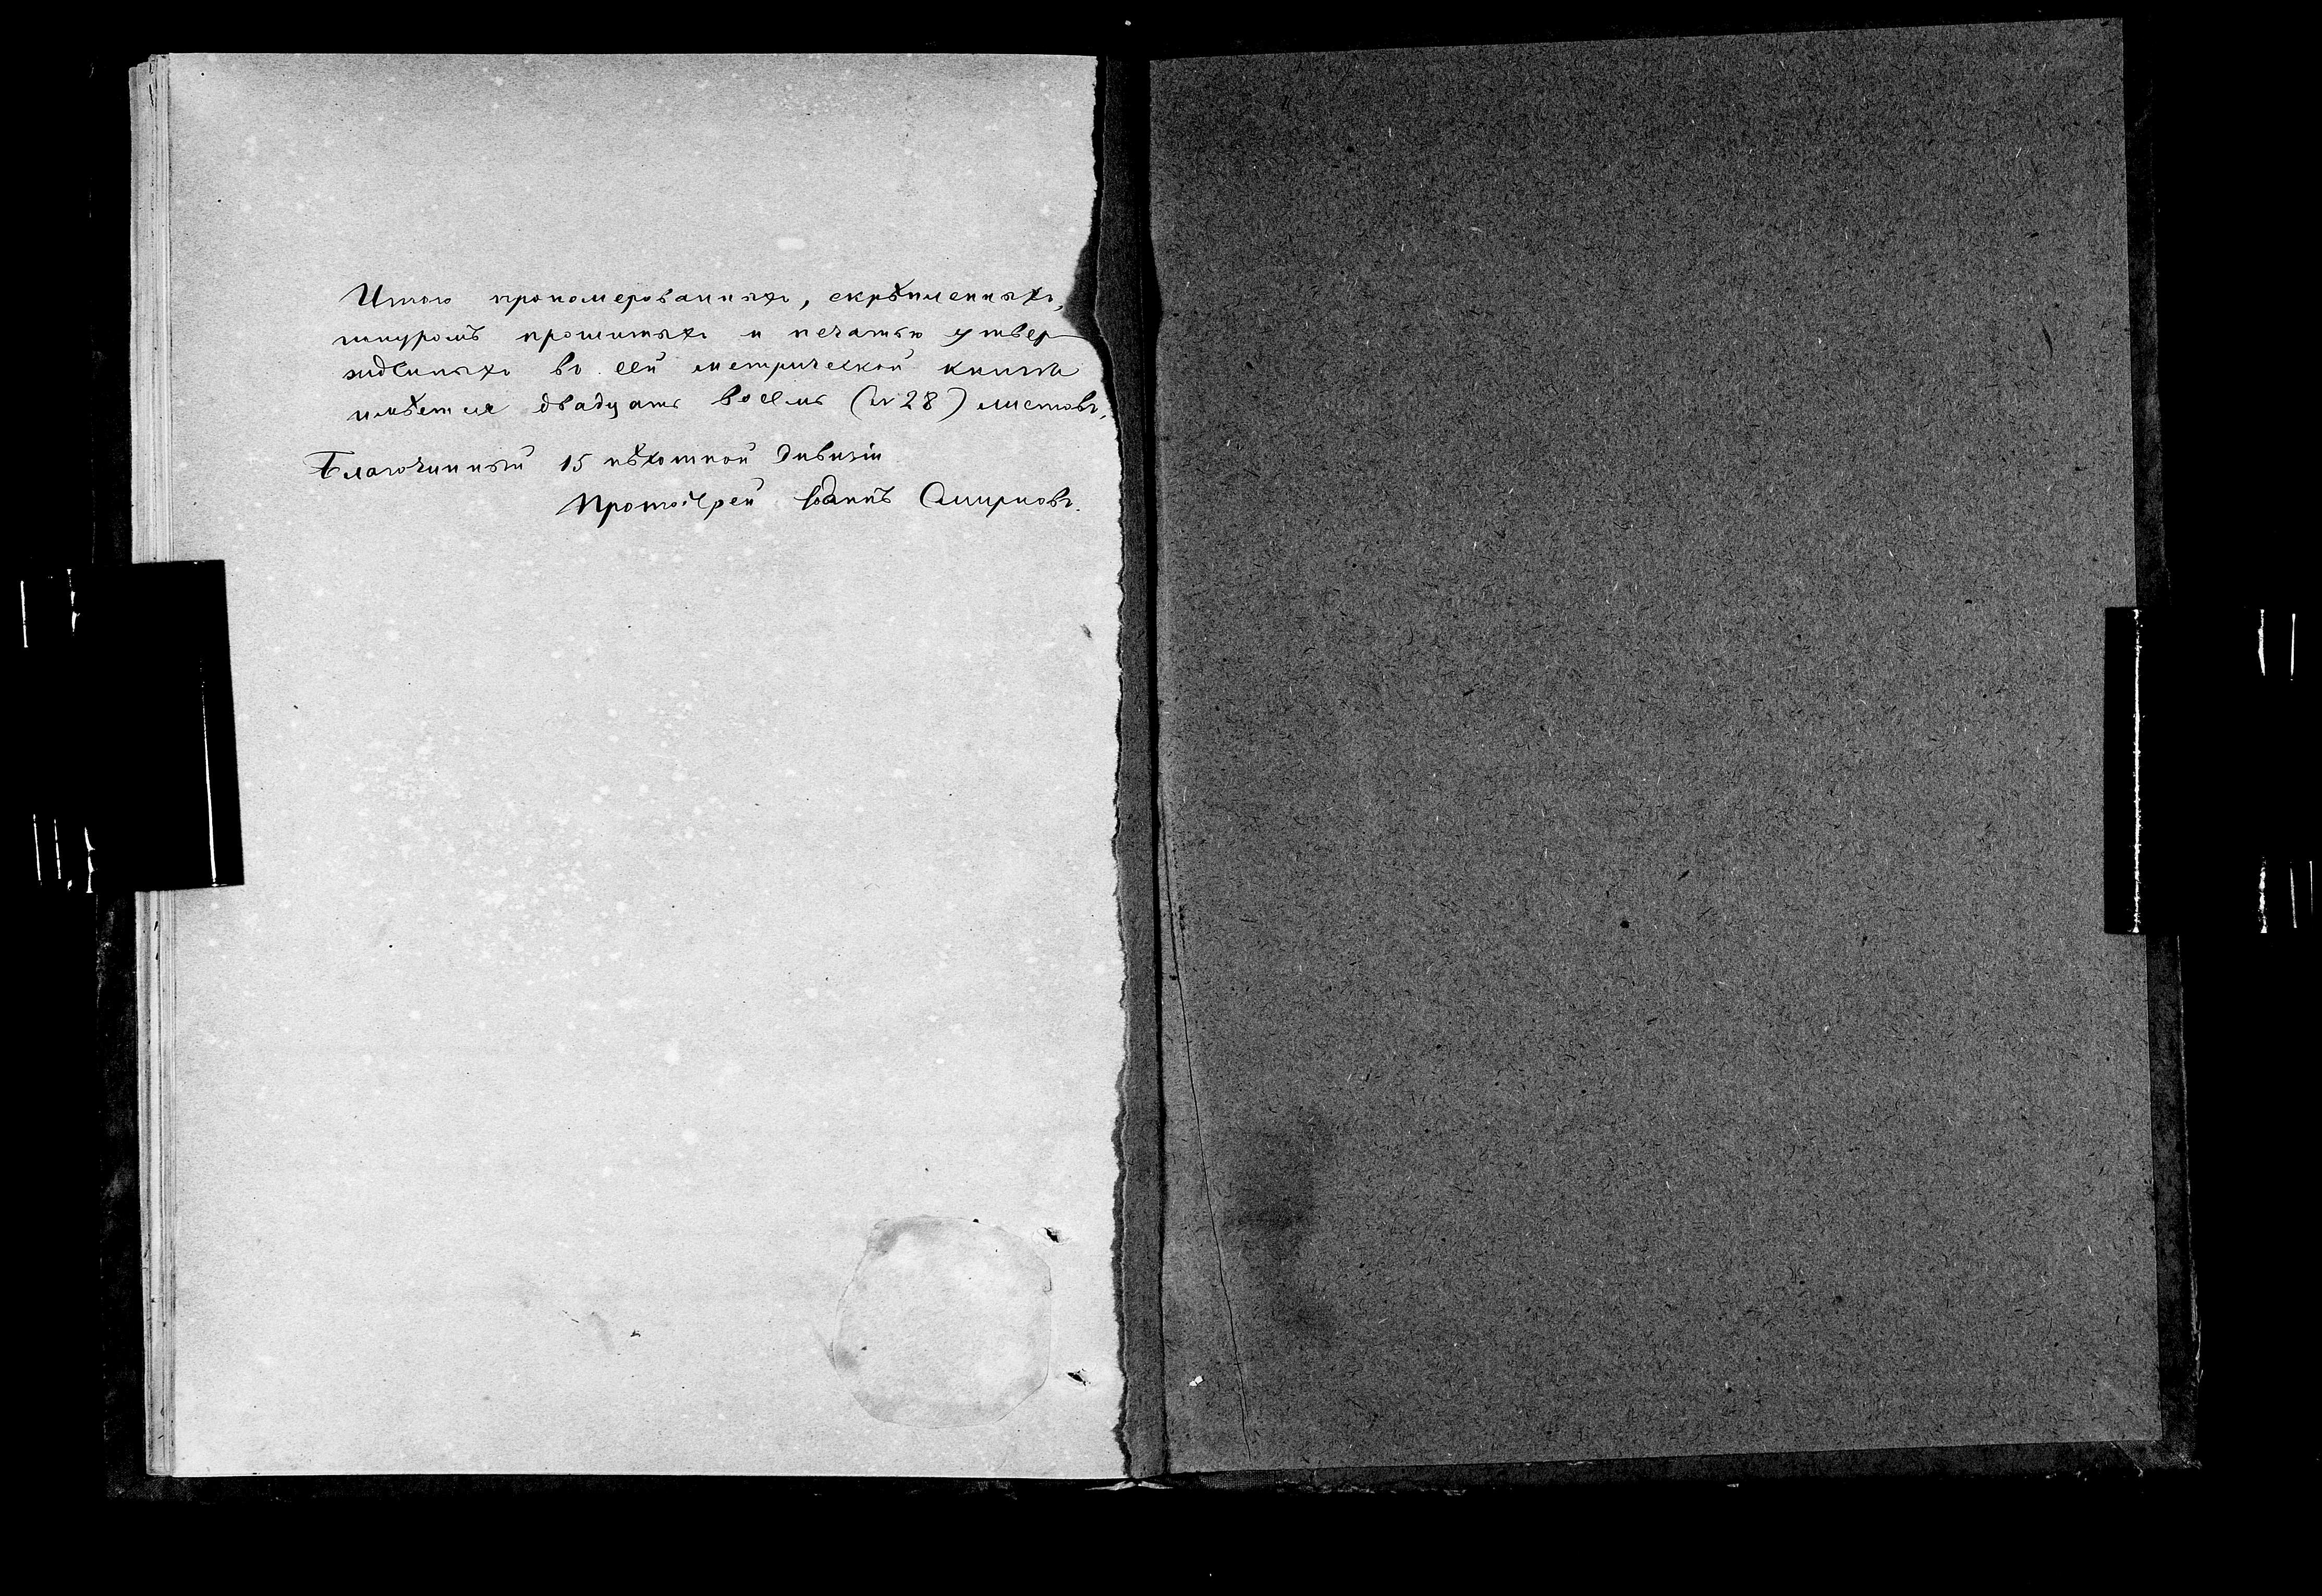 Итого прономерованныхъ, скрѣпленныхъ,
шнуромъ прошитыхъ и печатью утвер
жденныхъ въ сей метрической книгѣ
имѣется двадцать восемь (№ 28) листовъ.
Благочинный 15 пѣхотной дивизіи
Протоіерей Іоаннъ Смирновъ.